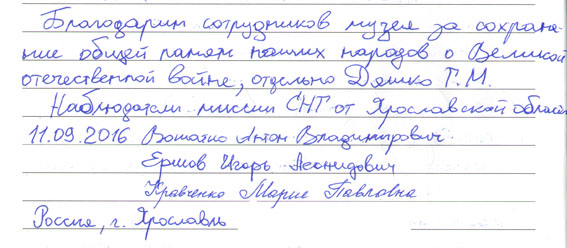 Благодарим сотрудников музея за сохране-
ние общей памяти наших народов о Великой
отечественной войне, отдельно Дяшко Т.М.
Наблюдатели миссии СНГ от Ярославской области
11.09.2016 Вошатко Антон Владимирович
Ершов Игорь Леонидович
Кравченко Мария Павловна
Россия, г. Ярославль